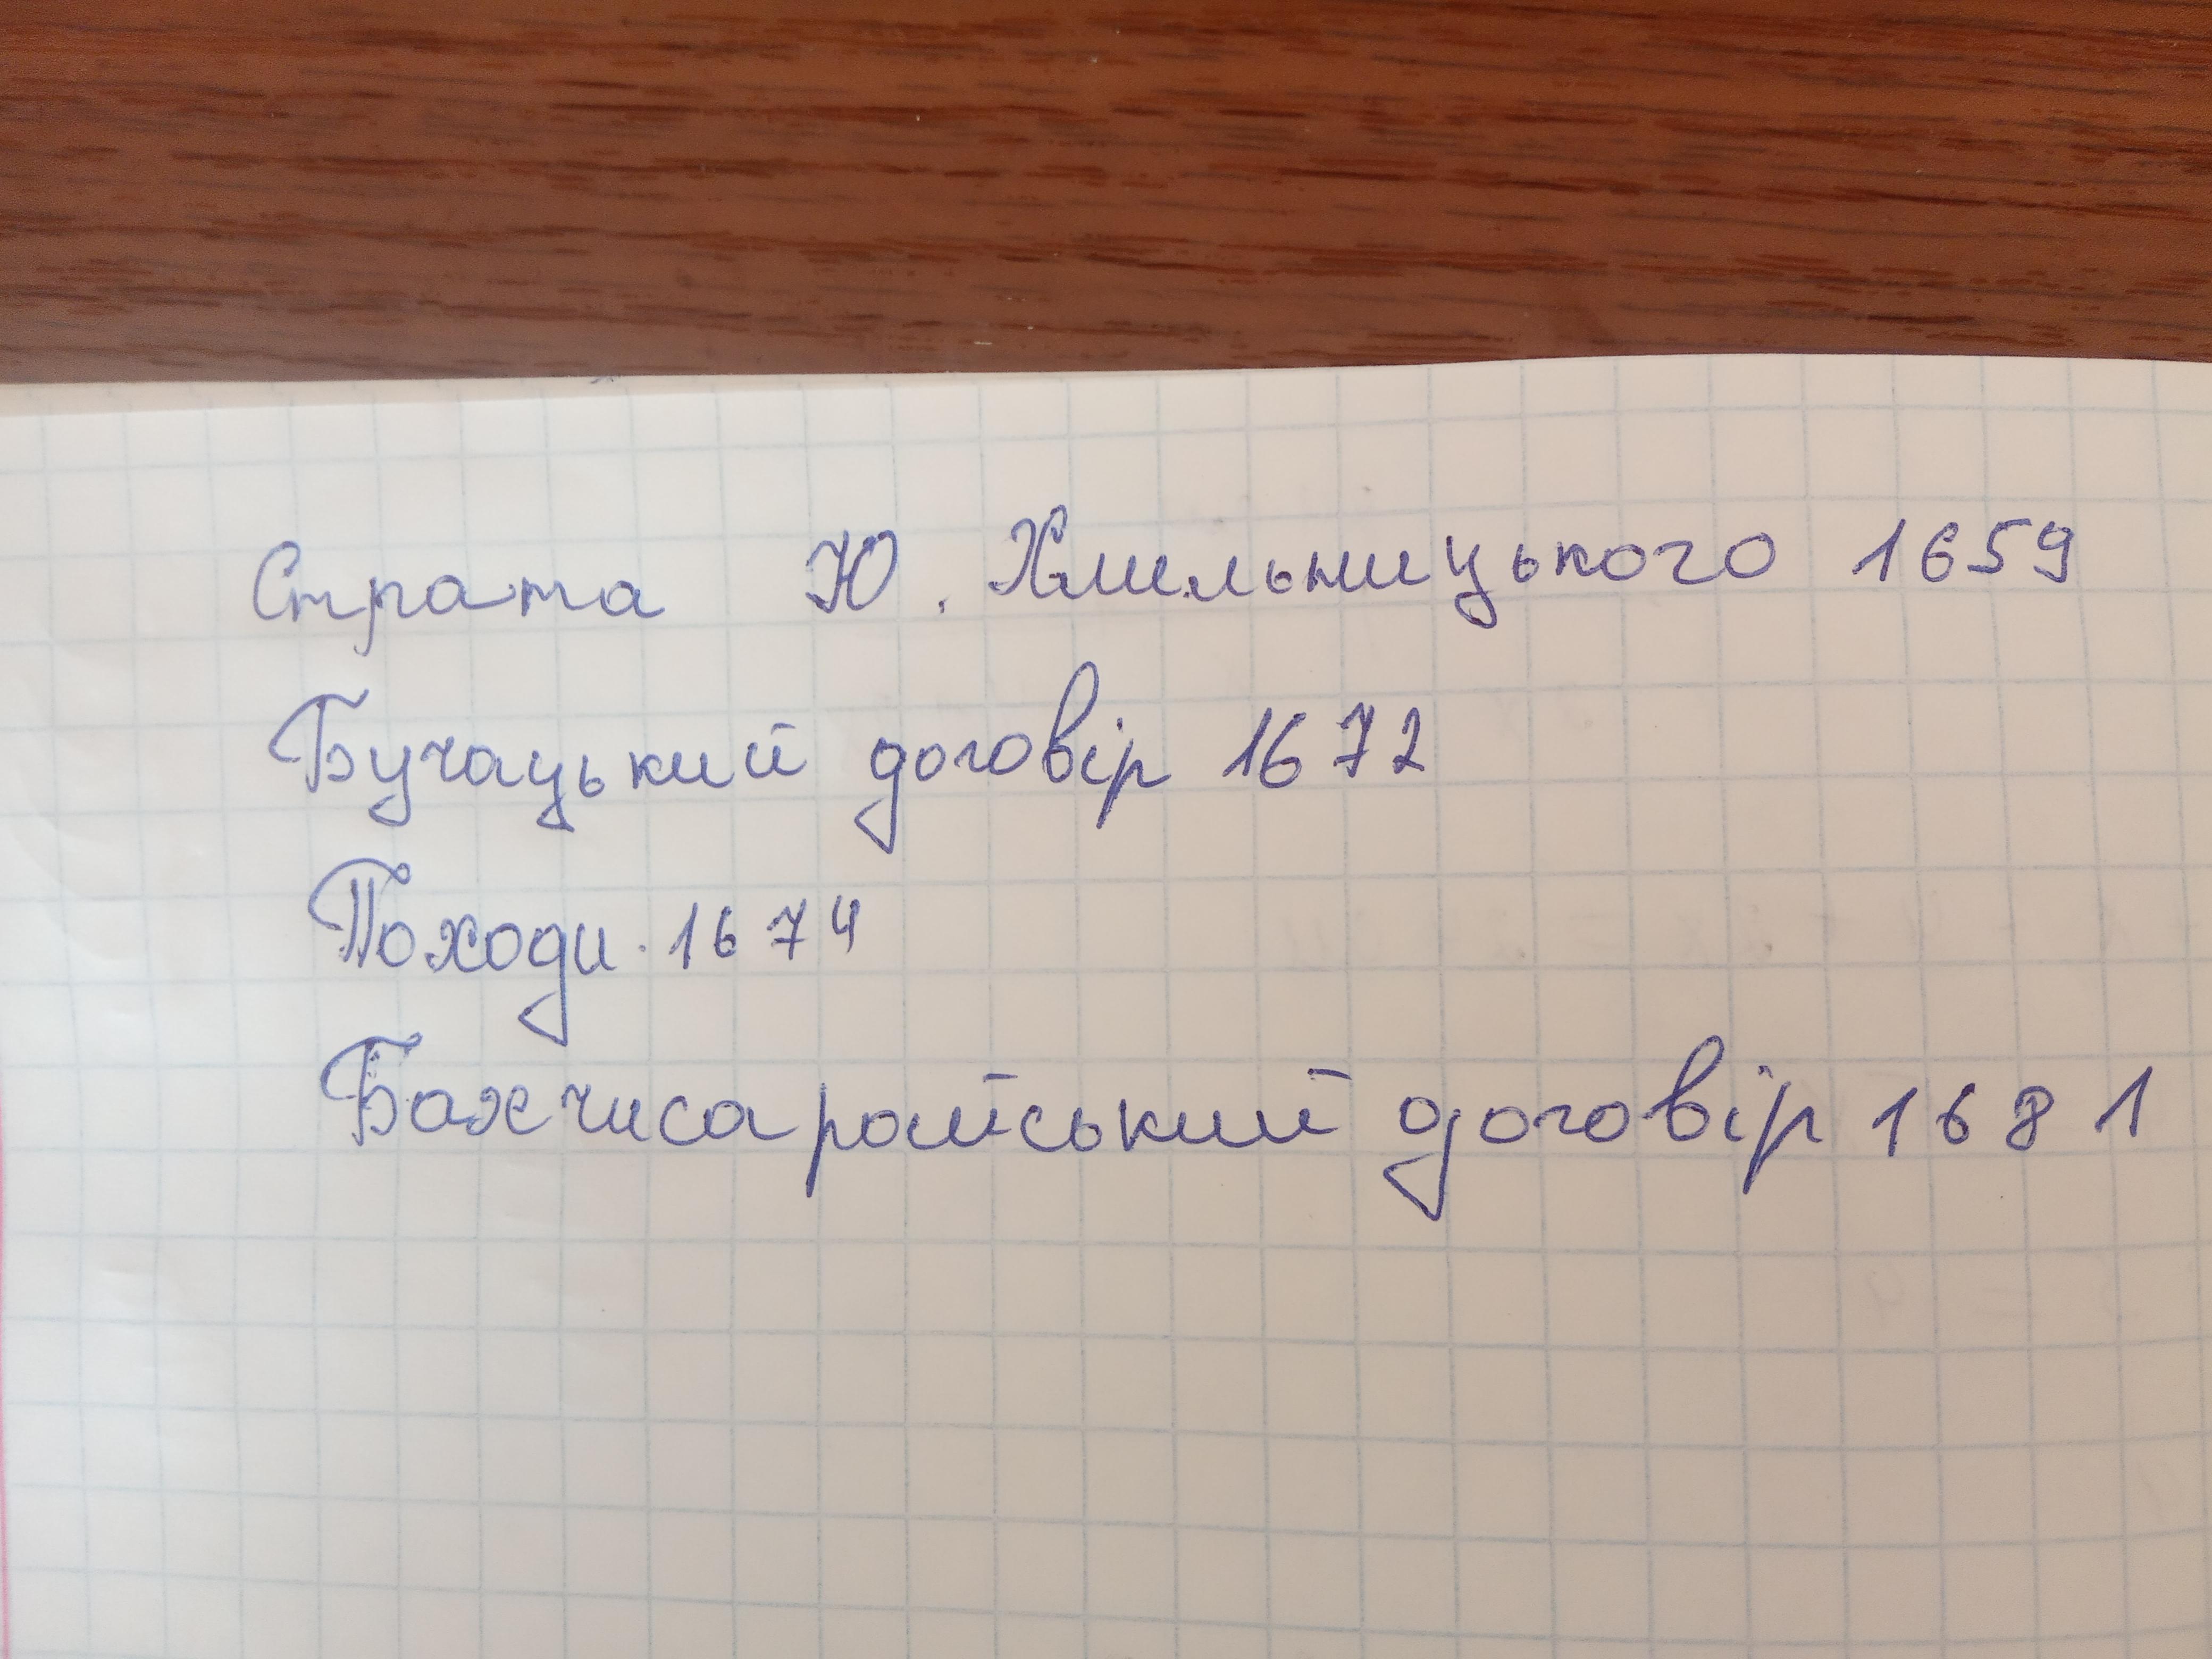 Страта Ю. Хмельницького 1659
Бучацький договір 1672
Походи. 1674
Бахчисарайський договір 1681